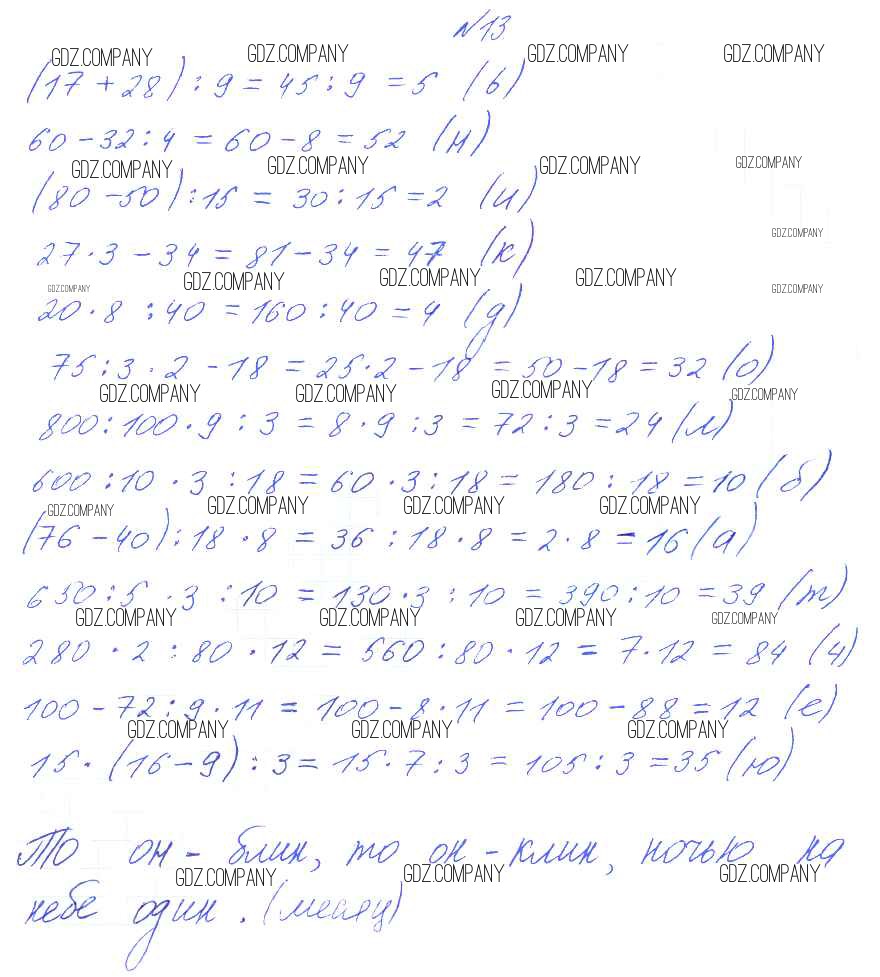 №13
GDZ.COMPANY GDZ.COMPANY GDZ.COMPANY GDZ.COMPANY
(17 + 28) : 9 = 45 : 9 = 5 (ь)
60 - 32 : 4 = 60 - 8 = 52 (н)
GDZ.COMPANY GDZ.COMPANY GDZ.COMPANY GDZ.COMPANY
(80 - 50) : 15 = 30 : 15 = 2 (и)
GDZ.COMPANY
27 · 3 - 34 = 81 - 34 = 47 (к)
GDZ.COMPANY GDZ.COMPANY GDZ.COMPANY GDZ.COMPANY GDZ.COMPANY
20 · 8 : 40 = 160 : 40 = 4 (д)
75 : 3 · 2 - 18 = 25 · 2 - 18 = 50 - 18 = 32 (о)
GDZ.COMPANY GDZ.COMPANY GDZ.COMPANY GDZ.COMPANY
800 : 100 · 9 : 3 = 8 · 9 : 3 = 72 : 3 = 24 (л)
600 : 10 · 3 : 18 = 60 · 3 : 18 = 180 : 18 = 10 (б)
GDZ.COMPANY GDZ.COMPANY GDZ.COMPANY GDZ.COMPANY
(76 - 40) : 18 · 8 = 36 : 18 · 8 = 2 · 8 = 16 (а)
650 : 5 · 3 : 10 = 130 · 3 : 10 = 390 : 10 = 39 (т)
GDZ.COMPANY GDZ.COMPANY GDZ.COMPANY GDZ.COMPANY
280 · 2 : 80 · 12 = 560 : 80 · 12 = 7 · 12 = 84 (ч)
100 - 72 : 9 · 11 = 100 - 8 · 11 = 100 - 88 = 12 (е)
GDZ.COMPANY GDZ.COMPANY GDZ.COMPANY
15 · (16 - 9) : 3 = 15 · 7 : 3 = 105 : 3 = 35 (ю)
То он - блин, то он - клин, ночью на
GDZ.COMPANY GDZ.COMPANY GDZ.COMPANY
небе один. (месяц)